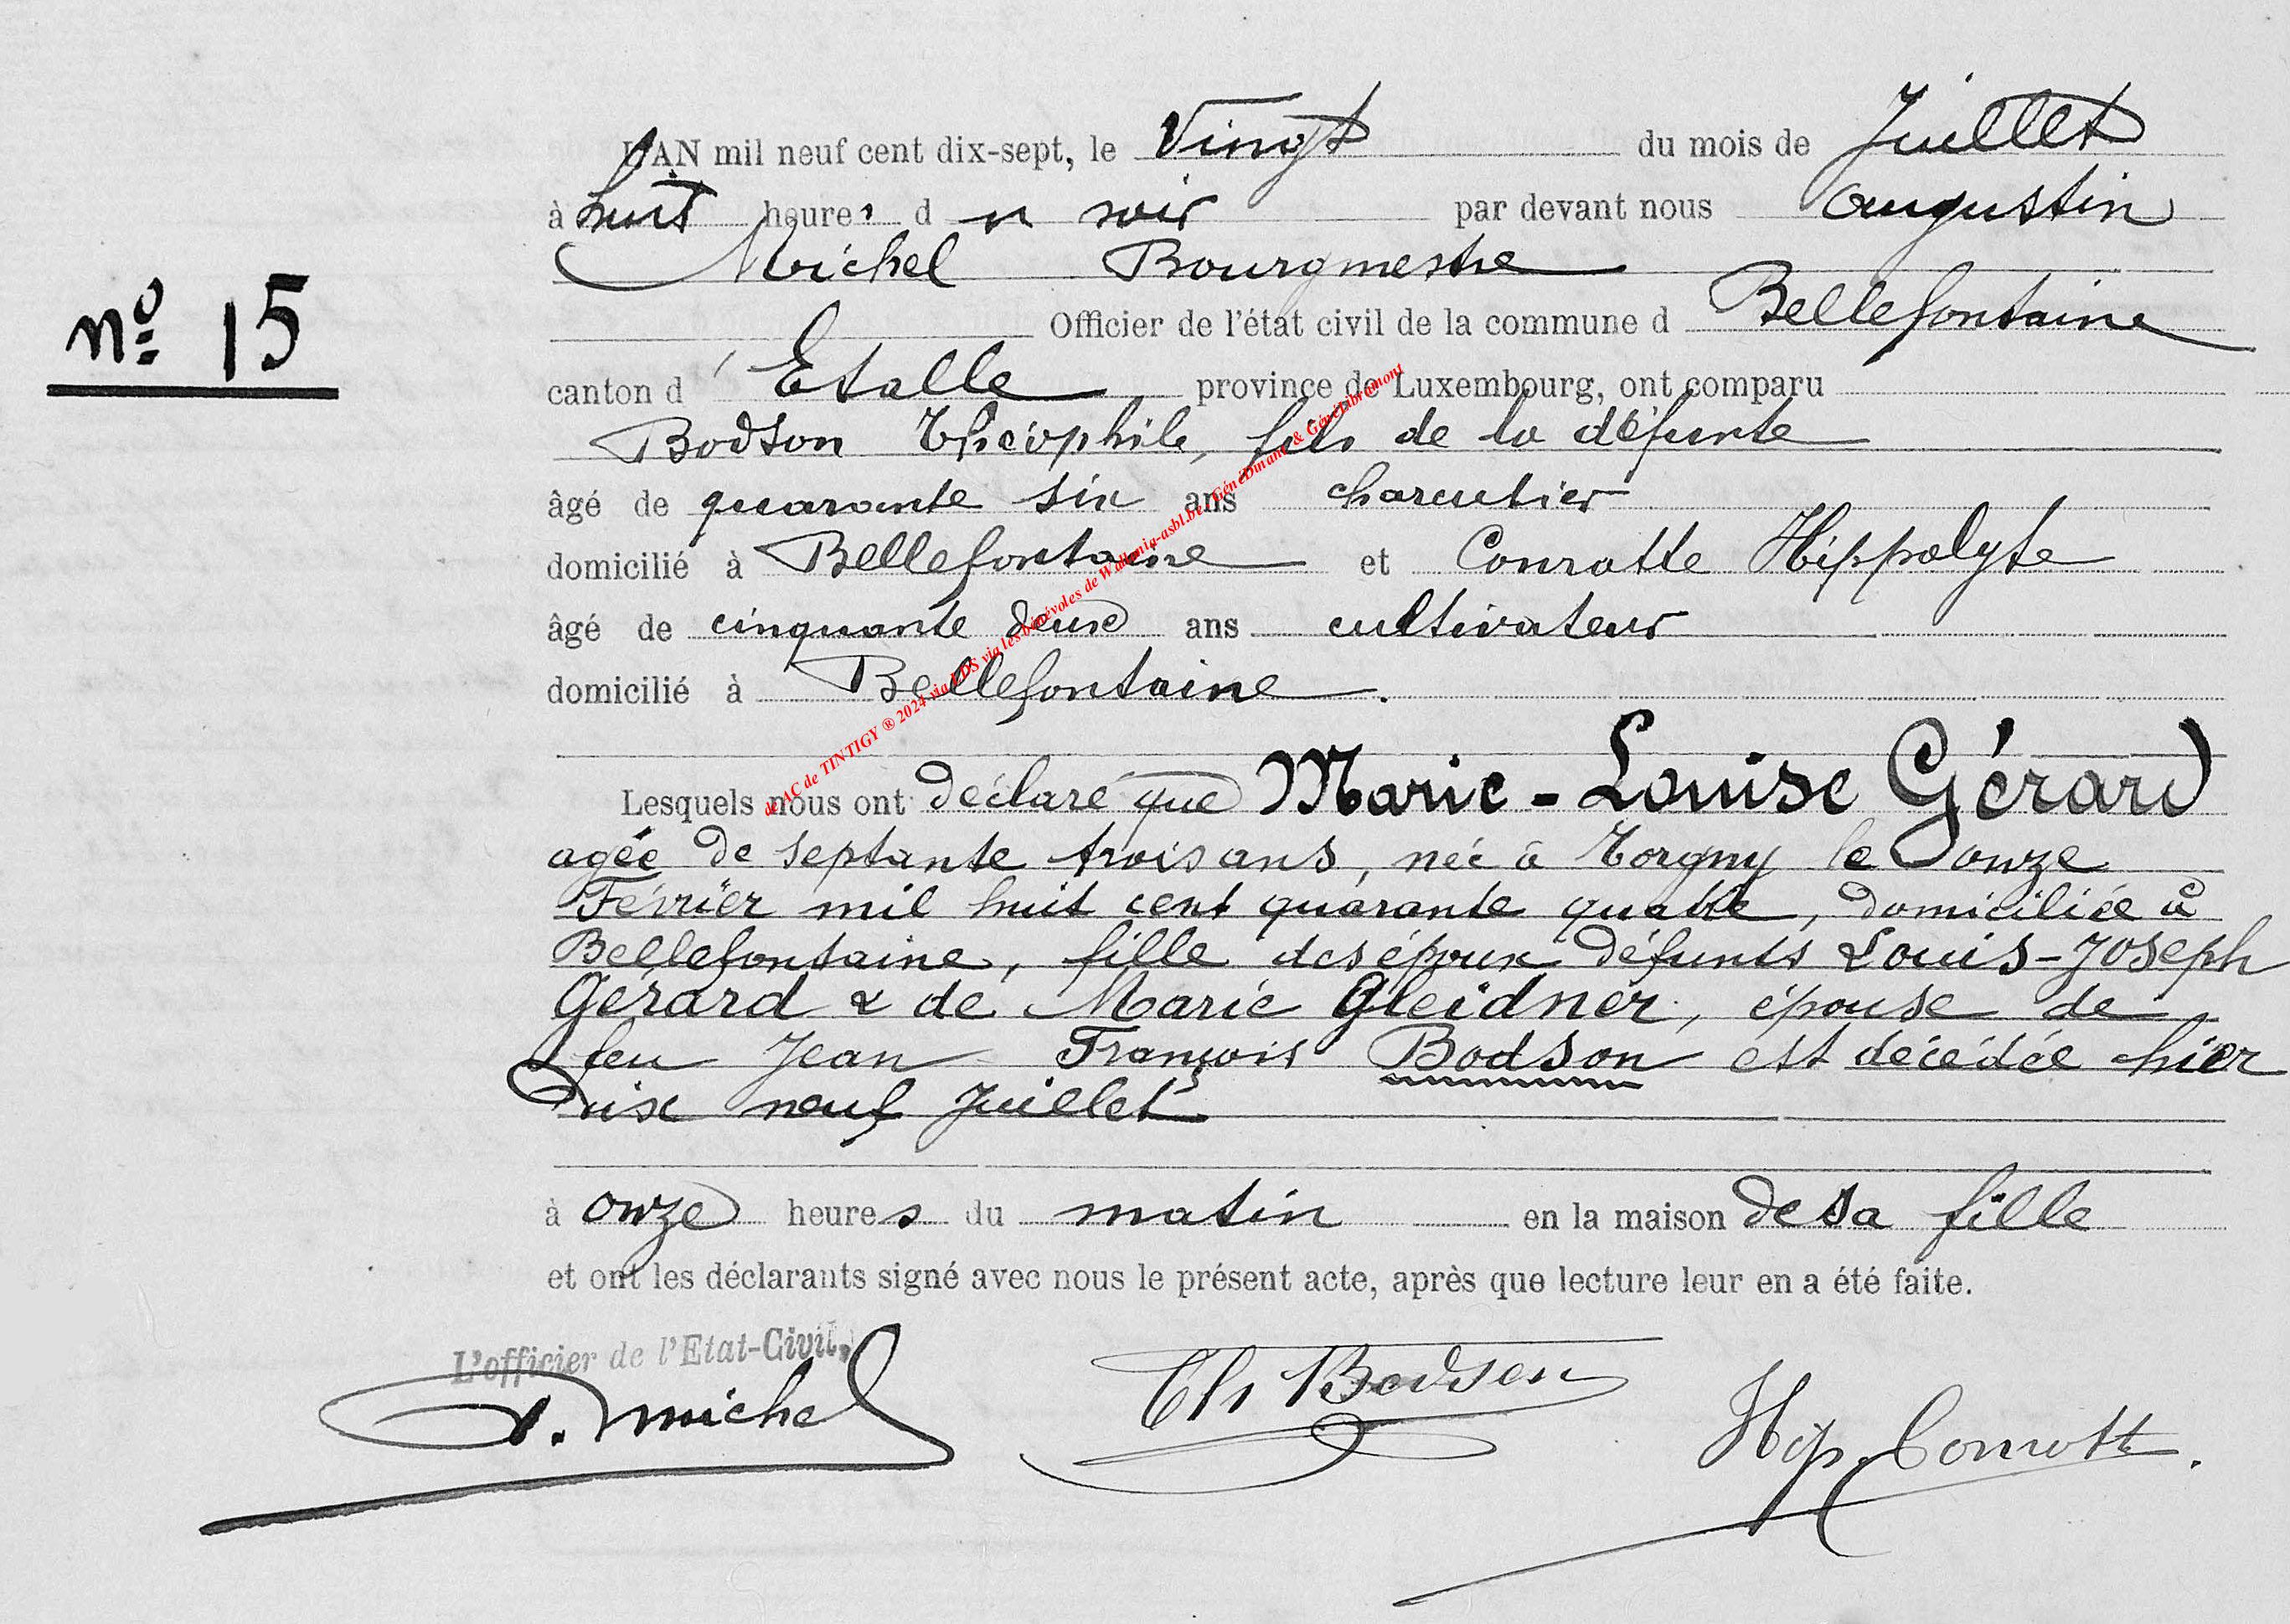 L'AN mil neuf cent dix-sept, le Vingt du mois de Juillet
à huit heures du soir par devant nous Augustin
Michel Bourgmestre
nº 15
Officier de l'état civil de la commune d Bellefontaine
canton d'Etalle province de Luxembourg, ont comparu
Bodson Théophile, fils de la défunte
âgé de quarante six ans charcutier
domicilié à Bellefontaine et Conrotte Hippolyte
âgé de cinquante deux ans cultivateur
domicilié à Bellefontaine.
de AC de TINTIGY ® 2024 via LDS via les bénévoles de Wallonia-asbl.be, GénéDinant & GénéLibramont
Lesquels nous ont déclaré que Marie-Louise Gérard
agée de septante trois ans, née à Torgny le onze
Février mil huit cent quarante quatre, domiciliée à
Bellefontaine, fille des époux défunts Louis-Joseph
Gérard & de Marie Gleidner, épouse de
feu Jean François Bodson est décédée hier
dix neuf Juillet
à onze heures du matin en la maison de sa fille
et ont les déclarants signé avec nous le présent acte, après que lecture leur en a été faite.
L'officier de l'Etat-Civil,
A. Michel
Th Bodson
Hip. Conrotte.